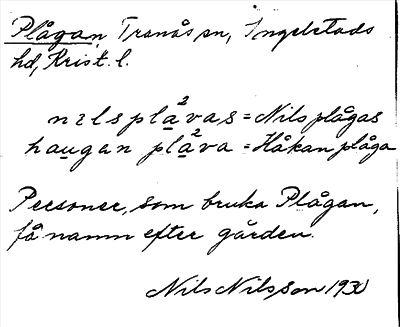 Plågan, Tranås sn, Ingelstads
hd, Krist. l.
nilsplа̱²vas = Nils plågas
ha̱ugan pla̱²va = Håkan plåga
Personer, som bruka Plågan,
få namn efter gården.
Nils Nilsson 1930